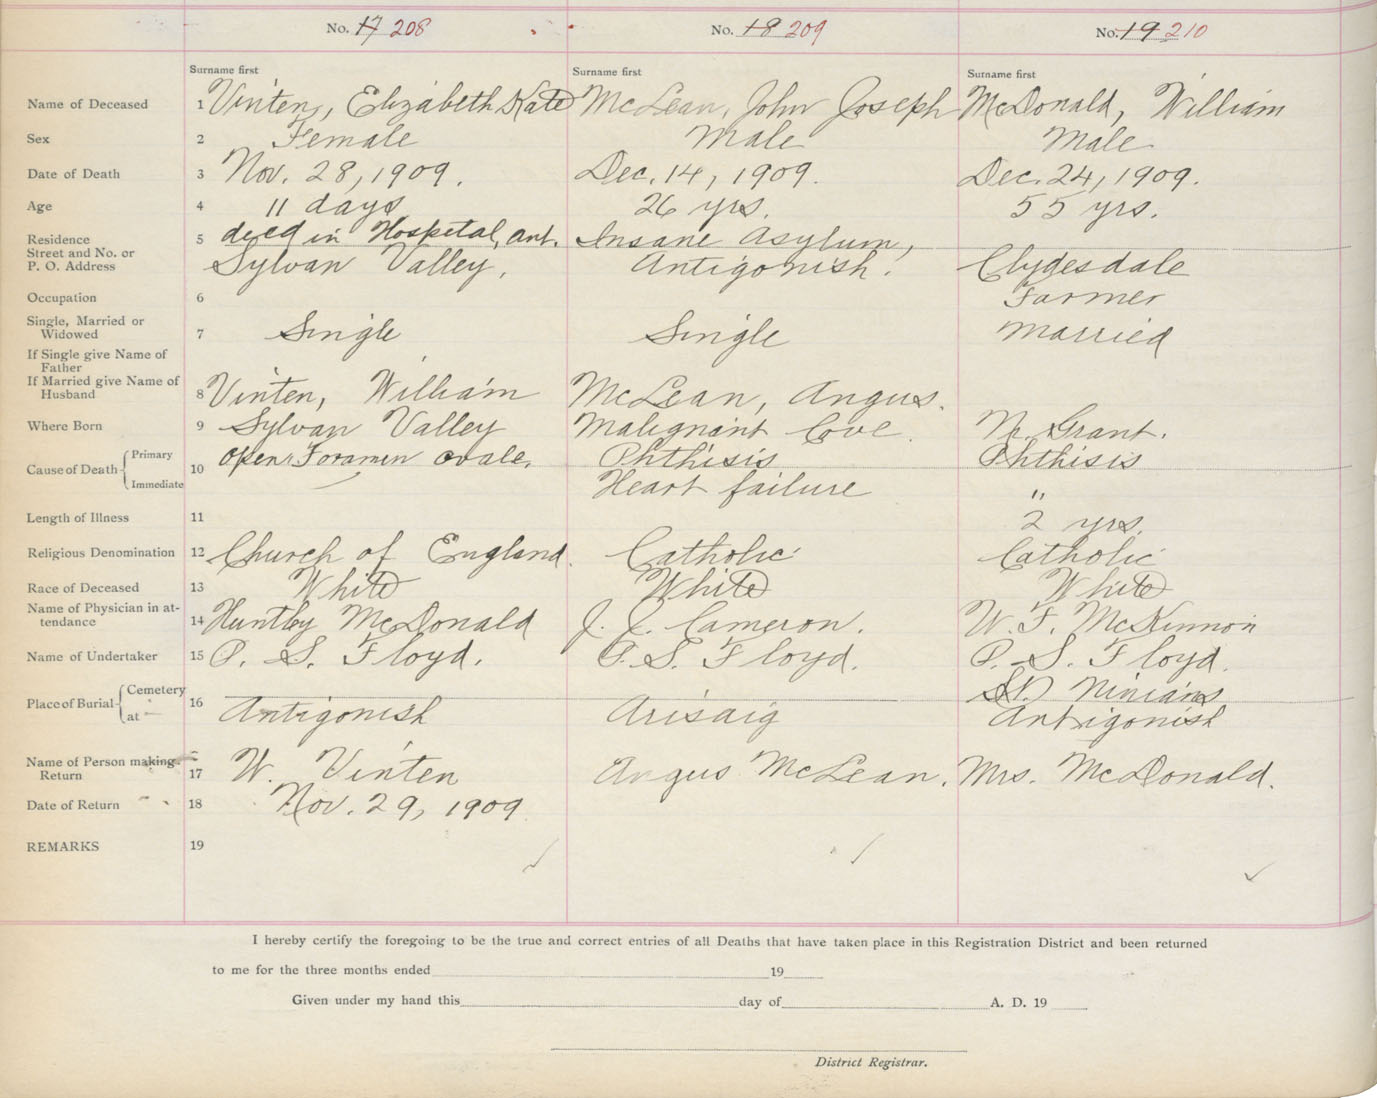 No. 17 208 No. 18 209 No. 19 210
Surname first Surname first Surname first
Name of Deceased 1 Vinten, Elizabeth Kate McLean, John Joseph McDonald, William
Sex 2 Female Male Male
Date of Death 3 Nov. 28, 1909. Dec. 14, 1909. Dec. 24, 1909.
Age 4 11 days 26 yrs. 55 yrs.
Residence 5 died in Hospital, Ant. Insane Asylum,
Street and No. or
P. O. Address Sylvan Valley. Antigonish. Clydesdale
Occupation 6 Farmer
Single, Married or
Widowed 7 Single Single Married
If Single give Name of
Father
If Married give Name of
Husband 8 Vinten, William McLean, Angus.
Where Born 9 Sylvan Valley Malignant Cove. Grant.
Cause of Death Primary 10 Open Foramen ovale. Phthisis Phthisis
Immediate Heart failure "
Length of Illness 11 2 yrs.
Religious Denomination 12 Church of England. Catholic Catholic
Race of Deceased 13 White White White
Name of Physician in at-
tendance 14 Huntley McDonald J. J. Cameron. W. F. McKinnon
Name of Undertaker 15 P. S. Floyd. P. S. Floyd. P. S. Floyd.
Place of Burial Cemetery 16 St. Ninians
at Antigonish Arisaig Antigonish
Name of Person making
Return 17 W. Vinten Angus McLean. Mrs. McDonald.
Date of Return 18 Nov. 29, 1909
REMARKS 19
I hereby certify the foregoing to be the true and correct entries of all Deaths that have taken place in this Registration District and been returned
to me for the three months ended 19
Given under my hand this day of A. D. 19
District Registrar.